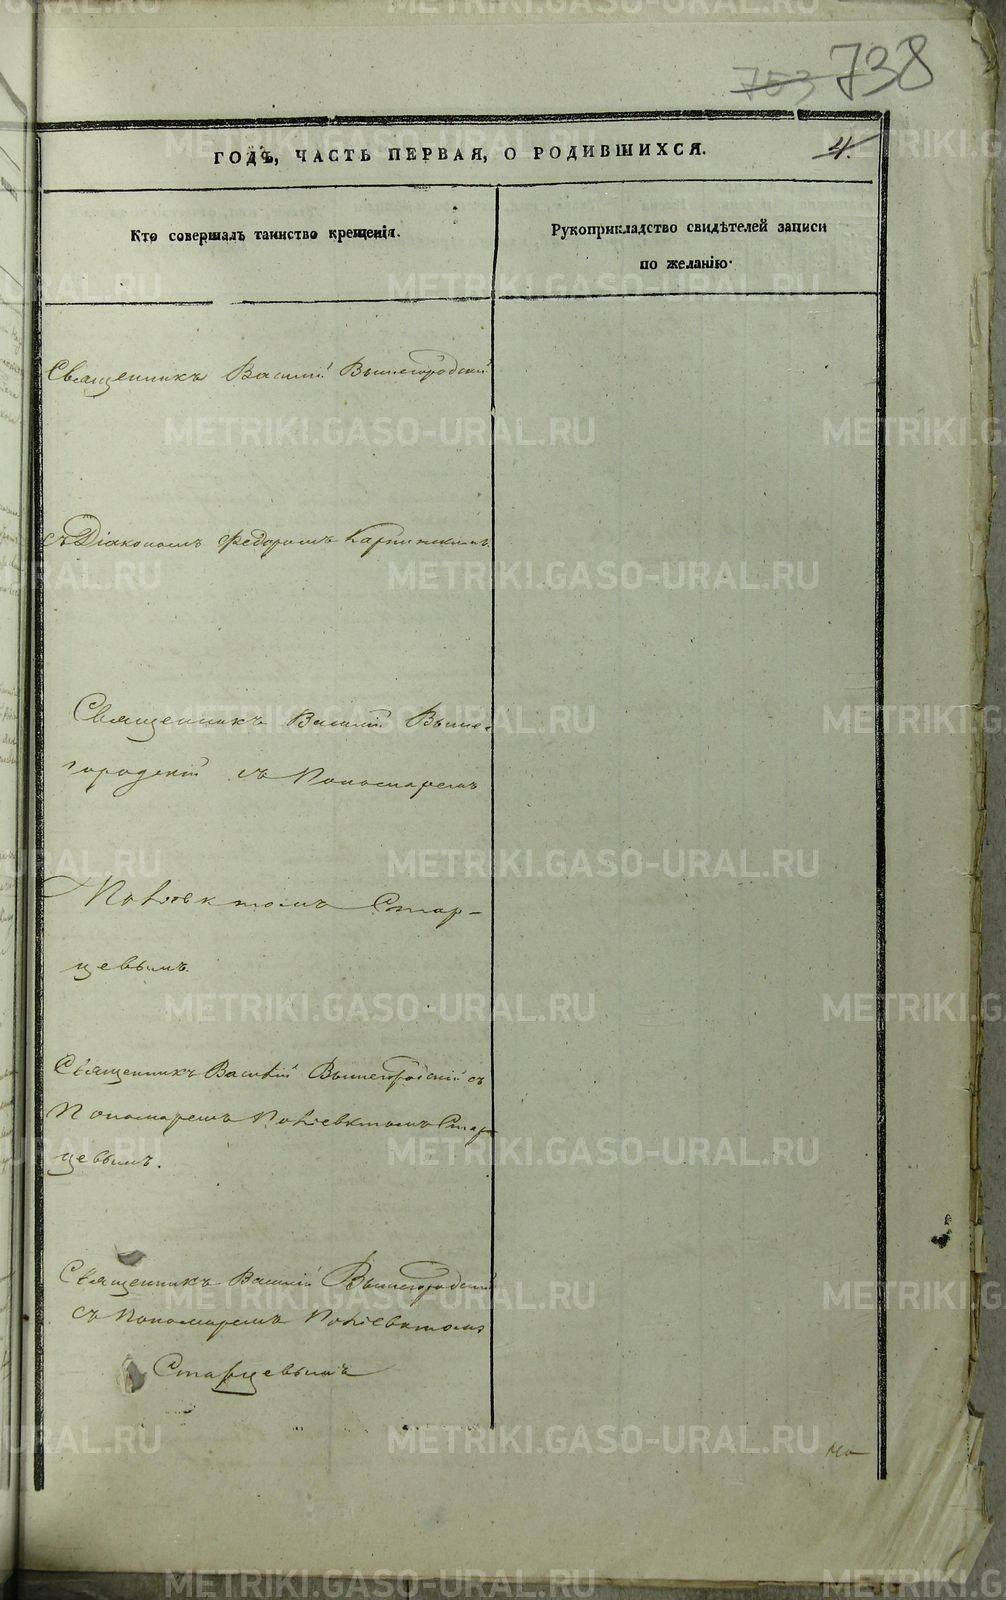 753 738
ГОДЪ, ЧАСТЬ ПЕРВАЯ, О РОДИВШИХСЯ.
4.
Кто совершалъ таинство крещенія.
Рукоприкладство свидѣтелей записи
по желанію.
Священникъ Василій Вышегородскій
съ Діакономъ Федоромъ Карпинскимъ
Священникъ Василій Выше-
городскій съ Пономаремъ
Поліевктомъ Стар-
цевымъ.
Священникъ Василій Вышегородскій съ
Пономаремъ Поліевктомъ Стар
цевымъ.
Священникъ Василій Вышегородскій
съ Пономаремъ Поліевктомъ
Старцевымъ
METRIKI.GASO-URAL.RU